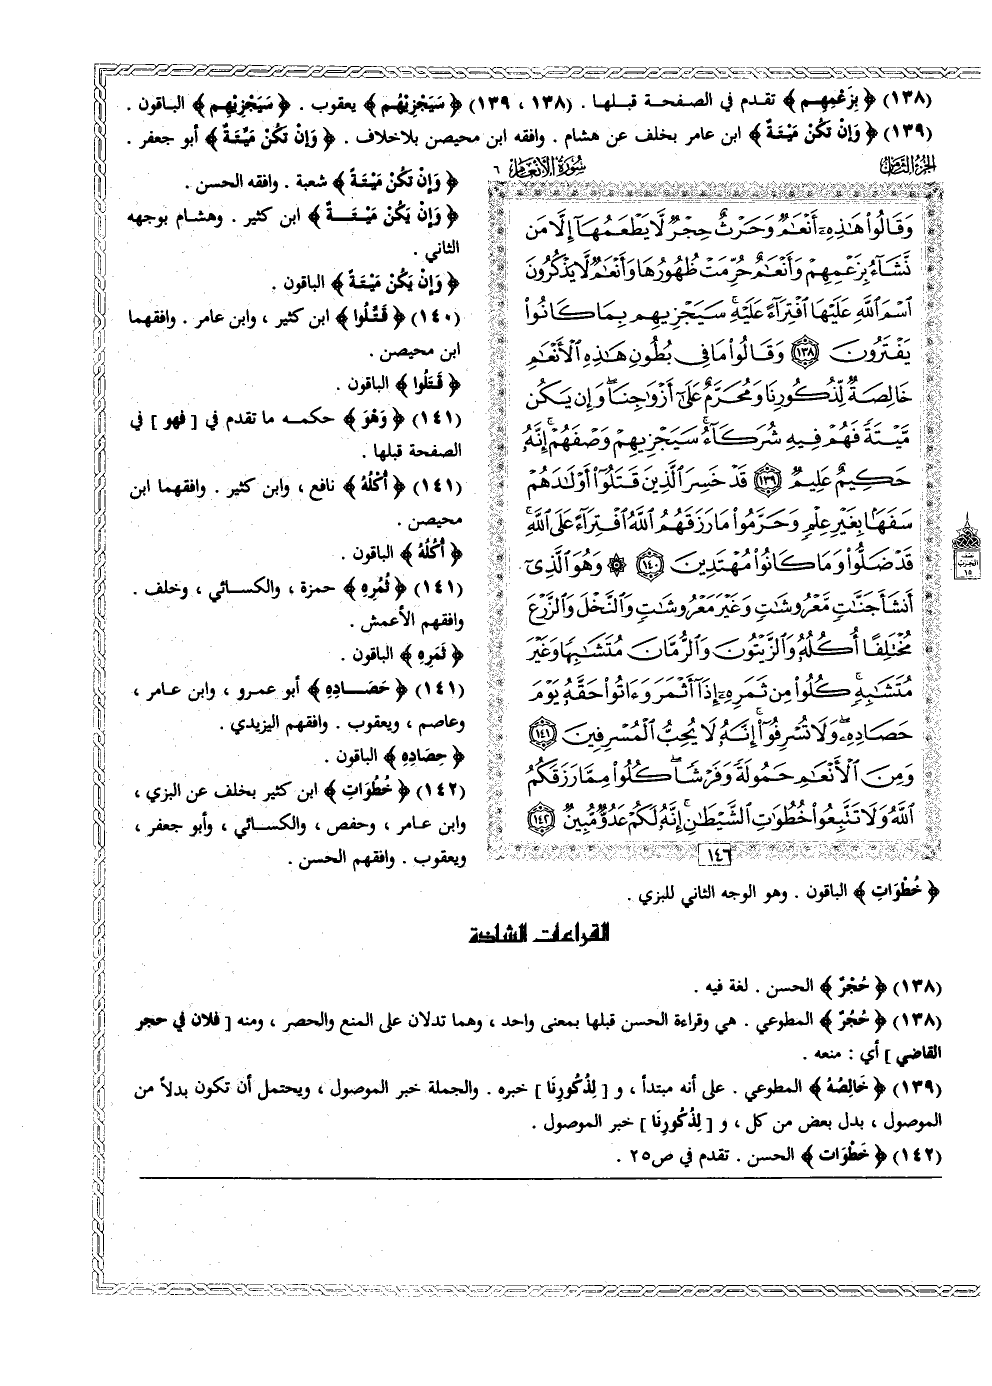 (١٣٨) ﴿ بِزَعْمِهِم ﴾ تقدم في الصفحة قبلها . (١٣٨ ، ١٣٩) ﴿ سَيَجْزِيهُم ﴾ يعقوب . ﴿ سَيَجْزِيهِم ﴾ الباقون .
(١٣٩) ﴿ وَإِنْ تَكُنْ مَيْتَةٌ ﴾ ابن عامر بخلف عن هشام . وافقه ابن محيصن بلاخلاف . ﴿ وَإِنْ تَكُنْ مَيِّتَةٌ ﴾ أبو جعفر .
الجزء الثامن
سورة الأنعام ٦
وَقَالُوا۟ هَـٰذِهِۦٓ أَنْعَـٰمٌ وَحَرْثٌ حِجْرٌ لَّا يَطْعَمُهَآ إِلَّا مَن
نَّشَآءُ بِزَعْمِهِمْ وَأَنْعَـٰمٌ حُرِّمَتْ ظُهُورُهَا وَأَنْعَـٰمٌ لَّا يَذْكُرُونَ
ٱسْمَ ٱللَّهِ عَلَيْهَا ٱفْتِرَآءً عَلَيْهِ ۚ سَيَجْزِيهِم بِمَا كَانُوا۟
يَفْتَرُونَ ١٣٨ وَقَالُوا۟ مَا فِى بُطُونِ هَـٰذِهِ ٱلْأَنْعَـٰمِ
خَالِصَةٌ لِّذُكُورِنَا وَمُحَرَّمٌ عَلَىٰٓ أَزْوَٰجِنَا ۖ وَإِن يَكُن
مَّيْتَةً فَهُمْ فِيهِ شُرَكَآءُ ۚ سَيَجْزِيهِمْ وَصْفَهُمْ ۚ إِنَّهُۥ
حَكِيمٌ عَلِيمٌ ١٣٩ قَدْ خَسِرَ ٱلَّذِينَ قَتَلُوٓا۟ أَوْلَـٰدَهُمْ
سَفَهًۢا بِغَيْرِ عِلْمٍ وَحَرَّمُوا۟ مَا رَزَقَهُمُ ٱللَّهُ ٱفْتِرَآءً عَلَى ٱللَّهِ ۚ
قَدْ ضَلُّوا۟ وَمَا كَانُوا۟ مُهْتَدِينَ ١٤٠ ۞ وَهُوَ ٱلَّذِىٓ
أَنشَأَ جَنَّـٰتٍ مَّعْرُوشَـٰتٍ وَغَيْرَ مَعْرُوشَـٰتٍ وَٱلنَّخْلَ وَٱلزَّرْعَ
مُخْتَلِفًا أُكُلُهُۥ وَٱلزَّيْتُونَ وَٱلرُّمَّانَ مُتَشَـٰبِهًا وَغَيْرَ
مُتَشَـٰبِهٍ ۚ كُلُوا۟ مِن ثَمَرِهِۦٓ إِذَآ أَثْمَرَ وَءَاتُوا۟ حَقَّهُۥ يَوْمَ
حَصَادِهِۦ ۖ وَلَا تُسْرِفُوٓا۟ ۚ إِنَّهُۥ لَا يُحِبُّ ٱلْمُسْرِفِينَ ١٤١
وَمِنَ ٱلْأَنْعَـٰمِ حَمُولَةً وَفَرْشًا ۚ كُلُوا۟ مِمَّا رَزَقَكُمُ
ٱللَّهُ وَلَا تَتَّبِعُوا۟ خُطُوَٰتِ ٱلشَّيْطَـٰنِ ۚ إِنَّهُۥ لَكُمْ عَدُوٌّ مُّبِينٌ ١٤٢
١٤٦
نصف
الحزب
١٥
﴿ وَإِنْ تَكُنْ مَيْتَةً ﴾ شعبة . وافقه الحسن .
﴿ وَإِنْ يَكُنْ مَيْتَةٌ ﴾ ابن كثير . وهشام بوجهه
الثاني .
﴿ وَإِنْ يَكُنْ مَيْتَةً ﴾ الباقون .
(١٤٠) ﴿ قَتَّلُوا ﴾ ابن كثير ، وابن عامر . وافقهما
ابن محيصن .
﴿ قَتَلُوا ﴾ الباقون .
(١٤١) ﴿ وَهُوَ ﴾ حكمه ما تقدم في [ فهو ] في
الصفحة قبلها .
(١٤١) ﴿ أُكْلُهُ ﴾ نافع ، وابن كثير . وافقهما ابن
محيصن .
﴿ أُكُلُهُ ﴾ الباقون .
(١٤١) ﴿ ثُمُرِهِ ﴾ حمزة ، والكسائي ، وخلف .
وافقهم الأعمش .
﴿ ثَمَرِهِ ﴾ الباقون .
(١٤١) ﴿ حَصَادِهِ ﴾ أبو عمرو ، وابن عامر ،
وعاصم ، ويعقوب . وافقهم اليزيدي .
﴿ حِصَادِهِ ﴾ الباقون .
(١٤٢) ﴿ خُطُوَاتِ ﴾ ابن كثير بخلف عن البزي ،
وابن عامر ، وحفص ، والكسائي ، وأبو جعفر ،
ويعقوب . وافقهم الحسن .
﴿ خُطْوَاتِ ﴾ الباقون . وهو الوجه الثاني للبزي .
القراءات الشاذة
(١٣٨) ﴿ حُجْرٌ ﴾ الحسن . لغة فيه .
(١٣٨) ﴿ حُجُرٌ ﴾ المطوعي . هي وقراءة الحسن قبلها بمعنى واحد ، وهما تدلان على المنع والحصر ، ومنه [ فلان في حجر
القاضي ] أي : منعه .
(١٣٩) ﴿ خَالِصُهُ ﴾ المطوعي . على أنه مبتدأ ، و [ لِذُكُورِنَا ] خبره . والجملة خبر الموصول ، ويحتمل أن تكون بدلاً من
الموصول ، بدل بعض من كل ، و [ لِذُكُورِنَا ] خبر الموصول .
(١٤٢) ﴿ خَطْوَات ﴾ الحسن . تقدم في ص٢٥ .